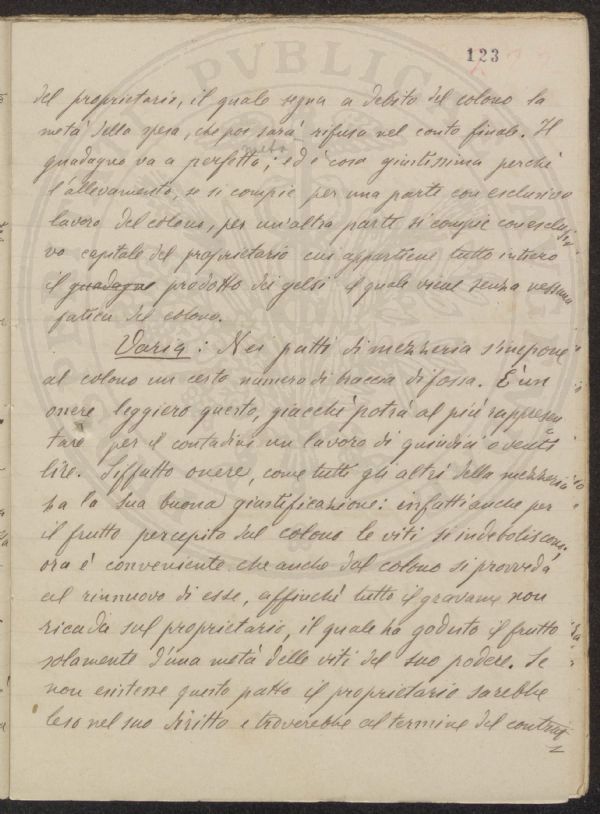 123
del proprietario, il quale segna a debito del colono la
metà della spesa, che poi sarà rifusa nel conto finale. Il
guadagno va a perfetta metà; ed è cosa giustissima perchè
l'allevamento, se si compie per una parte con esclusivo
lavoro del colono, per un'altra parte si compie con esclusi
vo capitale del proprietario cui appartiene tutto intiero
il guadagno prodotto dei gelsi il quale viene senza nessuna
fatica del colono.
Varia: Nei patti di mezzeria s'impone
al colono un certo numero di braccia di fossa. È un
onere leggiero questo, giacchè potrà al più rappresen
tare per il contadino un lavoro di quindici o venti
lire. Siffatto onere, come tutti gli altri della mezzeria
ha la sua buona giustificazione: infatti anche per
il frutto percepito dal colono le viti si indeboliscono:
ora è conveniente che anche dal colono si provveda
al rinnuovo di esse, affinchè tutto il gravame non
ricada sul proprietario, il quale ha goduto il frutto
solamente d'una metà delle viti del suo podere. Se
non esistesse questo patto il proprietario sarebbe
leso nel suo diritto e troverebbe al termine del contrat